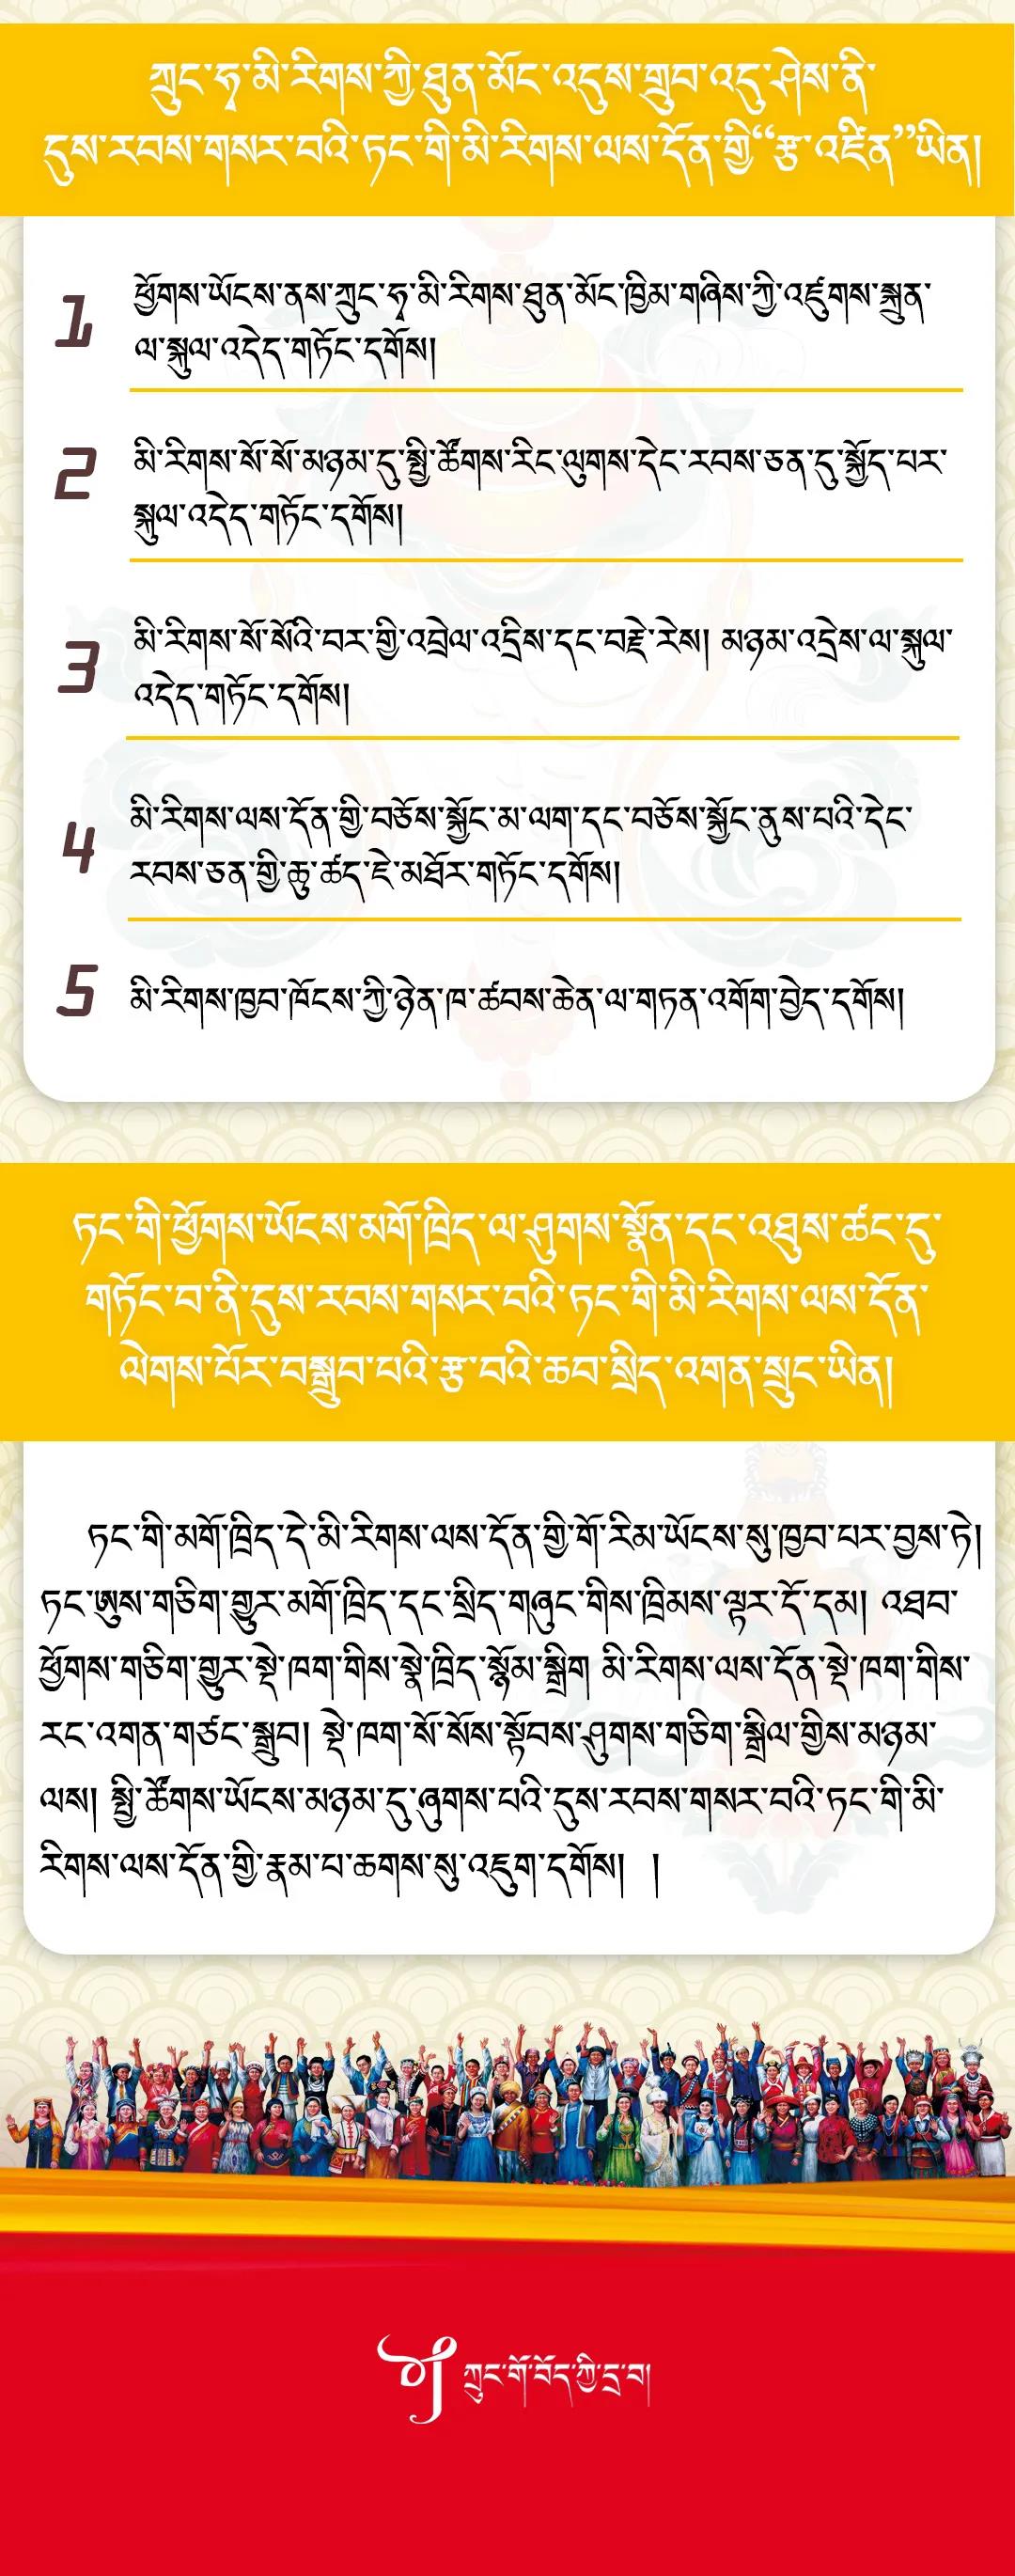 ཀྲུང་ཧྭ་མི་རིགས་ཀྱི་ཐུན་མོང་འདུས་གྲུབ་འདུ་ཤེས་ནི་
དུས་རབས་གསར་བའི་ཏང་གི་མི་རིགས་ལས་དོན་གྱི“རྩ་འཛིན”ཡིན།
1
ཕྱོགས་ཡོངས་ནས་ཀྲུང་ཧྭ་མི་རིགས་ཐུན་མོང་ཁྱིམ་གཞིས་ཀྱི་འཛུགས་སྐྲུན་
ལ་སྐུལ་འདེད་གཏོང་དགོས།
2
མི་རིགས་སོ་སོ་མཉམ་དུ་སྤྱི་ཚོགས་རིང་ལུགས་དེང་རབས་ཅན་དུ་སྐྱོད་པར་
སྐུལ་འདེད་གཏོང་དགོས།
3
མི་རིགས་སོ་སོའི་བར་གྱི་འབྲེལ་འདྲིས་དང་བརྗེ་རེས། མཉམ་འདྲེས་ལ་སྐུལ་
འདེད་གཏོང་དགོས།
4
མི་རིགས་ལས་དོན་གྱི་བཅོས་སྐྱོང་མ་ལག་དང་བཅོས་སྐྱོང་ནུས་པའི་དེང་
རབས་ཅན་གྱི་ཆུ་ཚད་ཇེ་མཐོར་གཏོང་དགོས།
5
མི་རིགས་ཁྱབ་ཁོངས་ཀྱི་ཉེན་ཁ་ཚབས་ཆེན་ལ་གཏན་འགོག་བྱེད་དགོས།
ཏང་གི་ཕྱོགས་ཡོངས་མགོ་ཁྲིད་ལ་ཤུགས་སྣོན་དང་འཐུས་ཚང་དུ་
གཏོང་བ་ནི་དུས་རབས་གསར་བའི་ཏང་གི་མི་རིགས་ལས་དོན་
ལེགས་པོར་བསྒྲུབ་པའི་རྩ་བའི་ཆབ་སྲིད་འགན་སྲུང་ཡིན།
ཏང་གི་མགོ་ཁྲིད་དེ་མི་རིགས་ལས་དོན་གྱི་གོ་རིམ་ཡོངས་སུ་ཁྱབ་པར་བྱས་ཏེ།
ཏང་ཨུས་གཅིག་གྱུར་མགོ་ཁྲིད་དང་སྲིད་གཞུང་གིས་ཁྲིམས་ལྟར་དོ་དམ། འཐབ་
ཕྱོགས་གཅིག་གྱུར་སྡེ་ཁག་གིས་སྣེ་ཁྲིད་སྙོམ་སྒྲིག མི་རིགས་ལས་དོན་སྡེ་ཁག་གིས་
རང་འགན་གཙང་སྒྲུབ། སྡེ་ཁག་སོ་སོས་སྟོབས་ཤུགས་གཅིག་སྒྲིལ་གྱིས་མཉམ་
ལས། སྤྱི་ཚོགས་ཡོངས་མཉམ་དུ་ཞུགས་པའི་དུས་རབས་གསར་བའི་ཏང་གི་མི་
རིགས་ལས་དོན་གྱི་རྣམ་པ་ཆགས་སུ་འཇུག་དགོས། །
ཀྲུང་གོ་བོད་ཀྱི་དྲ་བ།